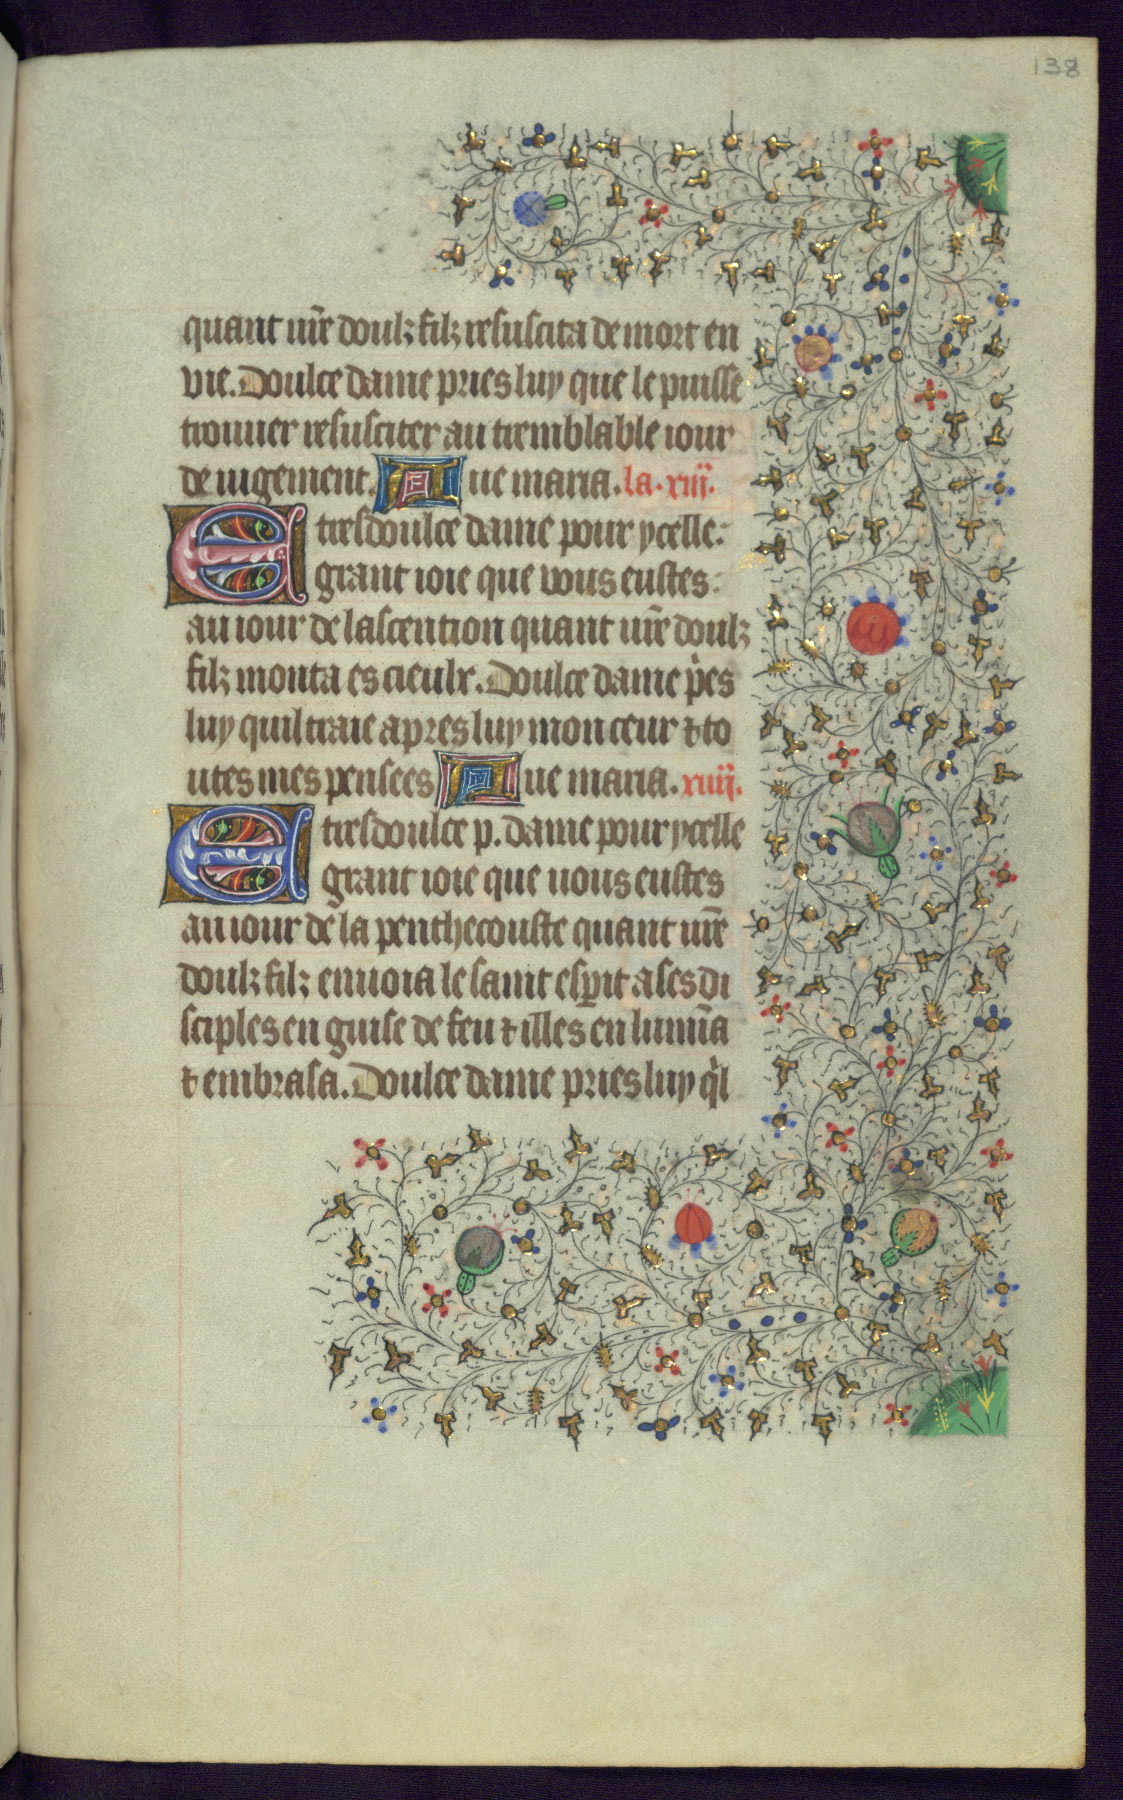 138
quant nr̄e doulz filz resuscita de mort en
vie. Doulce dame pries luy que ie puisse
trouuer resusciter au tremblable iour
de iugement. Aue maria. la .xiij.
E tresdoulce dame pour ycelle
grant ioie que vous eustes
au iour de lascention quant vr̄e doulz
filz monta es cieulx. Doulce dame p̃es
luy quil traie apres luy mon ceur ⁊ to
utes mes pensees Aue maria. xiiij.
E tresdoulce p. dame pour ycelle
grant ioie que vous eustes
au iour de la penthecouste quant vr̄e
doulz filz enuoia le saint esp̱it a ses di
sciples en guise de feu ⁊ illes enlumīa
⁊ embrasa. Doulce dame pries luy q̉l